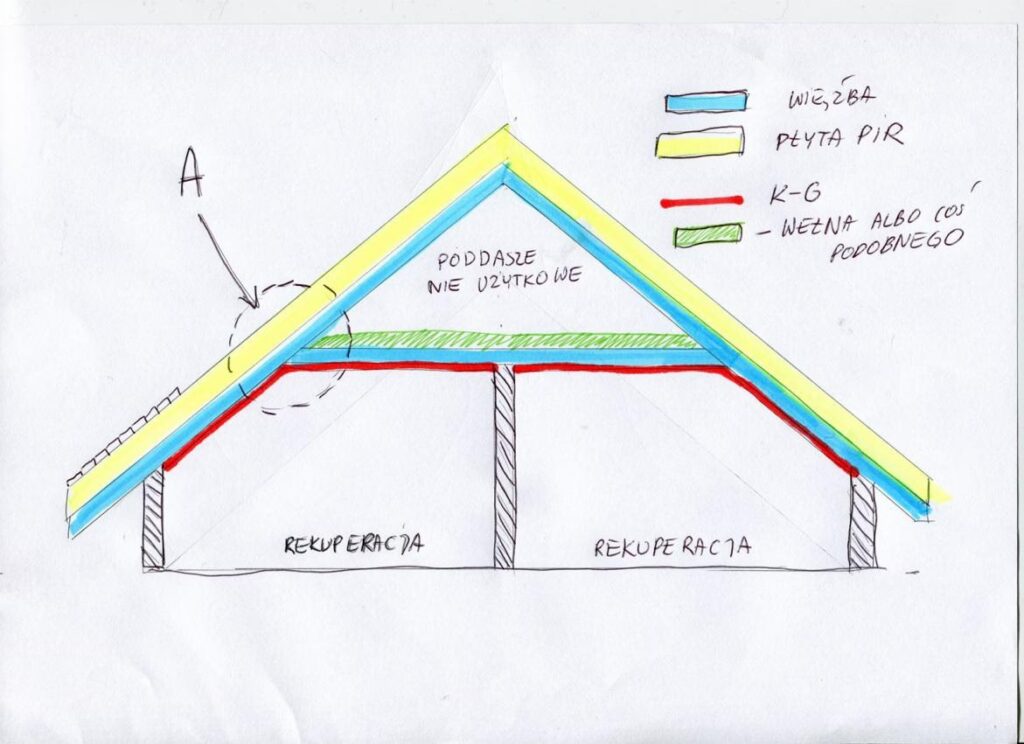 WIĘŹBA
PŁYTA PIR
A
K-G
- WEŁNA ALBO COŚ
PODOBNEGO
PODDASZE
NIE UŻYTKOWE
REKUPERACJA
REKUPERACJA